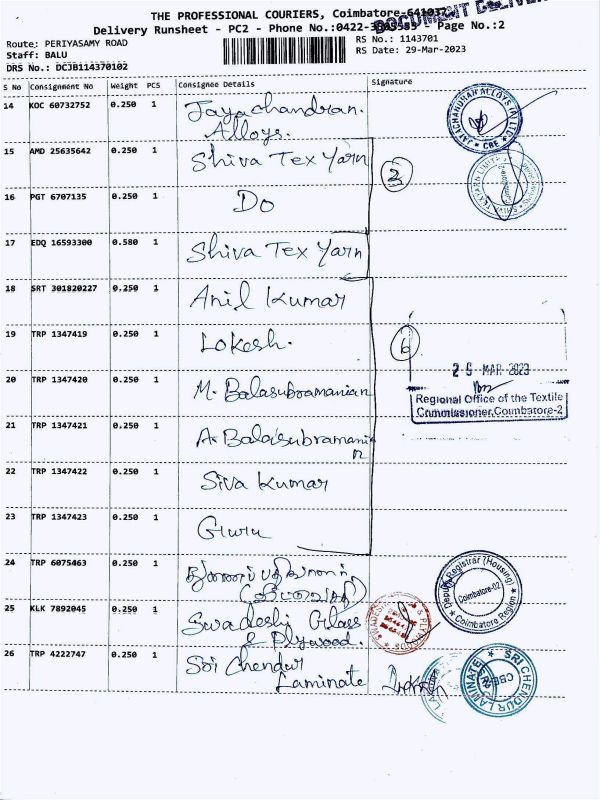 THE PROFESSIONAL COURIERS, Coimbatore-641037
Delivery Runsheet - PC2 - Phone No.:0422- Page No.:2
DOCUMENT DELIVERY
Route: PERIYASAMY ROAD
Staff: BALU
DRS No.: DCJB114370102
RS No.: 1143701
RS Date: 29-Mar-2023
S No Consignment No Weight PCS Consignee Details Signature
14 KOC 60732752 0.250 1 Jayachandran.
Alloys.
JAYACHANDRAN ALLOYS (P) LTD
CBE
15 AMD 25635642 0.250 1 Shiva Tex Yarn
2
16 PGT 6707135 0.250 1 Do
17 EDQ 16593300 0.580 1 Shiva Tex Yarn
18 SRT 301820227 0.250 1 Anil Kumar
19 TRP 1347419 0.250 1 Lokesh.
6
20 TRP 1347420 0.250 1 M. Balasubramanian
MAR 2023
Regional Office of the Textile
Commissioner, Coimbatore-2
21 TRP 1347421 0.250 1 A. Balasubramanian
22 TRP 1347422 0.250 1 Siva Kumar
23 TRP 1347423 0.250 1 Guru
24 TRP 6075463 0.250 1
Deputy Registrar (Housing)
Coimbatore-02
Coimbatore Region
25 KLK 7892045 0.250 1 Swadeshi Glass
& Plywood.
26 TRP 4222747 0.250 1 Sri Chendur
Laminate
SRI CHENDUR LAMINATE
CBE-2